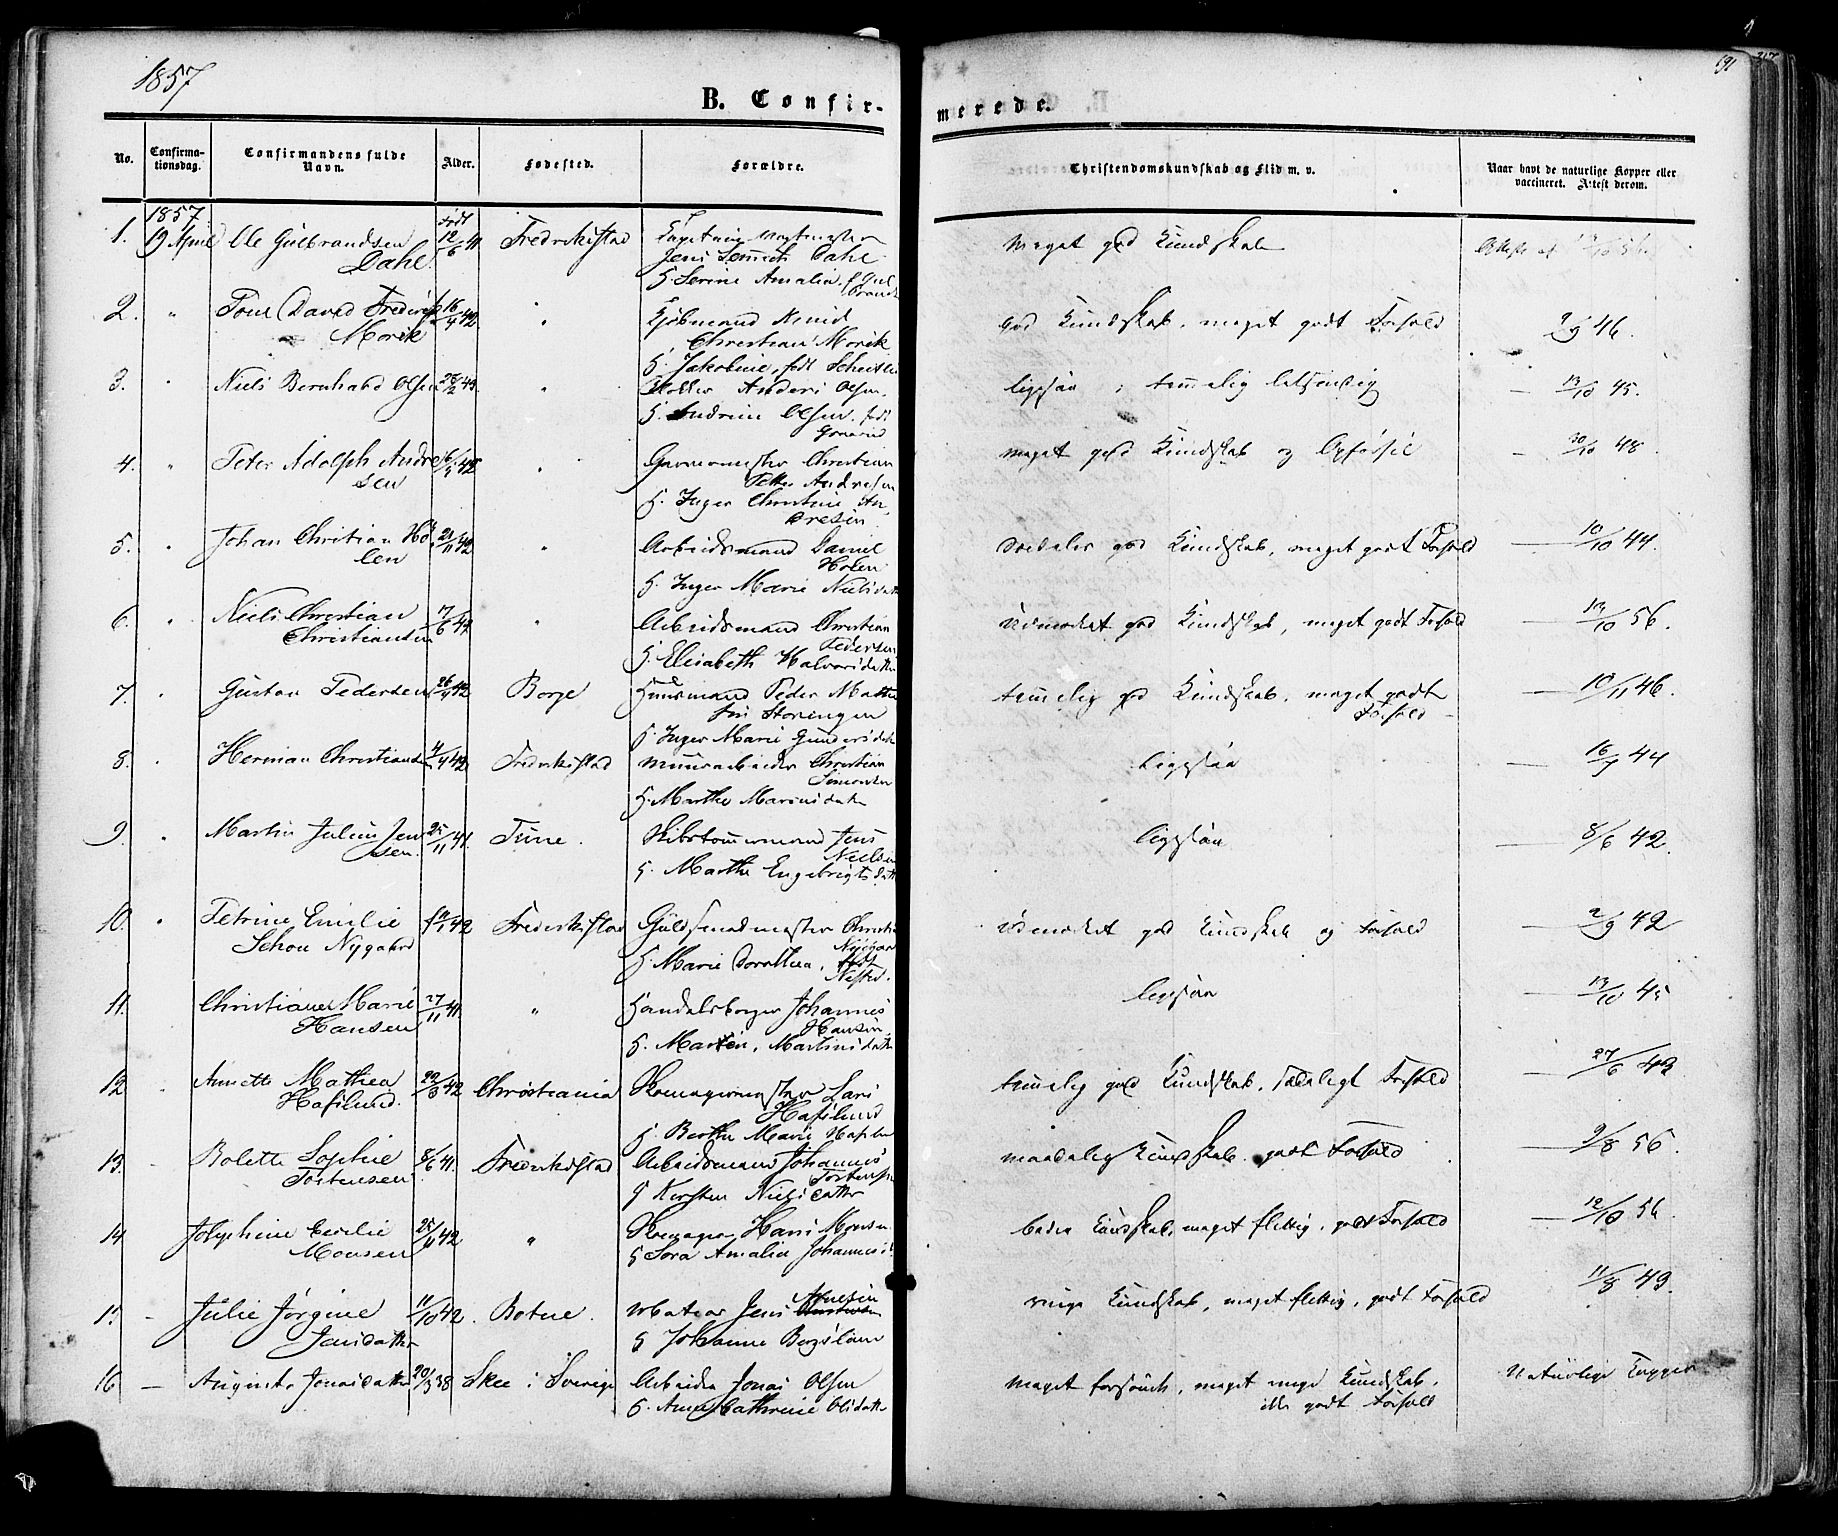 1857
B. Confirmerede.
191
No. Confirmationsdag. Confirmandens fulde Navn. Alder. Fødested. Forældre. Christendomskundskab og Flid m. v. Naar havt de naturlige Kopper eller vaccineret. Attest derom.
1857. født
1. 19 April Ole Gulbrandsen 12/6 41 Fredrikstad meget god Kundskab
Dahl. Jens Dahl
H. Serine Amalia f. Gulbrands
2. " David Fredrik 16/4 42 " Kjøbmand god Kundskab, meget godt Forhold 9/9 46.
Morik Christian Morik
H. Jakobine, født
3. " Niels Bernhard Olsen 28/2 43 " Anders Olsen. ligesaa, temmelig letsindig — 13/10 45.
H. Andrine Olsen, født
4. " Peter Adolph Andre 16/4 42 " Garvermester Christian meget god Kundskab og Opførsel — 30/10 48.
sen Petter Andresen
H. Inger Christine An
dresen
5. " Johan Christian Ho 21/11 42 " Arbeidsmand Daniel god Kundskab, meget godt Forhold — 10/10 44.
len Holen
H. Inger Marie Nielsdatter
6. " Niels Christian 17/6 42 " Arbeidsmand Christian udmærket god Kundskab, meget godt Forhold — 13/10 56.
Christiansen Pedersen
H. Elisabeth Halvorsdatter
7. " Gustav Pedersen 26/4 42 Borge Huusmand Peder Mathi temmelig god Kundskab, meget godt — 10/11 46.
sen Forhold
H. Inger Marie Gundersdatter
8. " Herman Christiansen 4/4 42 Fredrikstad Muurarbeider Christian ligesaa — 16/9 44
Simonsen
H. Marthe Marinsdatter
9. " Martin Julius Jen 25/11 41. Tune. Skibstømmermand Jens ligesaa — 8/6 42.
sen. Nielsen
H. Marthe Engebrigtsdatter
10. " Petrine Emilie 19/1 42 Frederikstad Guldsmedmester Christi udmærket god Kundskab og Forhold — 2/9 42
Schou Nygaard Nygaard
H. Marie Dorothea, født
11. Christiane Marie 27/11 41. " Handelsborger Johannes ligesaa — 13/10 45
Hansen Hansen
H. Maren, Martinsdatter
12 " Annette Mathea 22/3 42 Christiania Skomagermester Lars temmelig god Kundskab, Forhold — 27/6 43
Hafslund. Hafslund
H. Berthe Marie Hafslun
13. — Bolette Sophie 8/6 41. Frederikstad Arbeidsmand Johannes maadelig Kundskab. godt Forhold — 9/8 56.
Tostensen Tostensen
H Kirsten Nielsdatter
14 Josephine Cecilie 25/11 42 " Skomager Hans Monsen Kundskab, meget flittig, godt Forhold — 12/10 56.
Monsen H Amalia Johannesd
15. — Julie Jørgine 11/10 42. Botne. Matros Jens ringe Kundskab, meget flittig, godt Forhold 11/8 49.
Jensdatter H Johanne
16 — Augusta Jonasdatter 20/3 38 Skee i Sverige Arbeider Jonas Olsen meget forsømt, meget ringe Kundskab, Naturlige Kopper
H. Anne Cathrine Olsdatter ikke godt Forhold